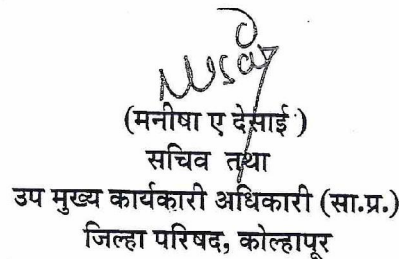 (मनीषा ए देसाई )
सचिव तथा
उप मुख्य कार्यकारी अधिकारी (सा.प्र.)
जिल्हा परिषद, कोल्हापूर